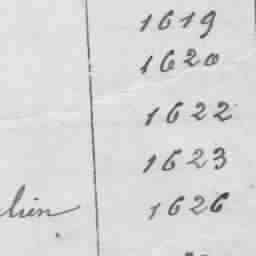 1619
1620
1622
1623
lien 1626